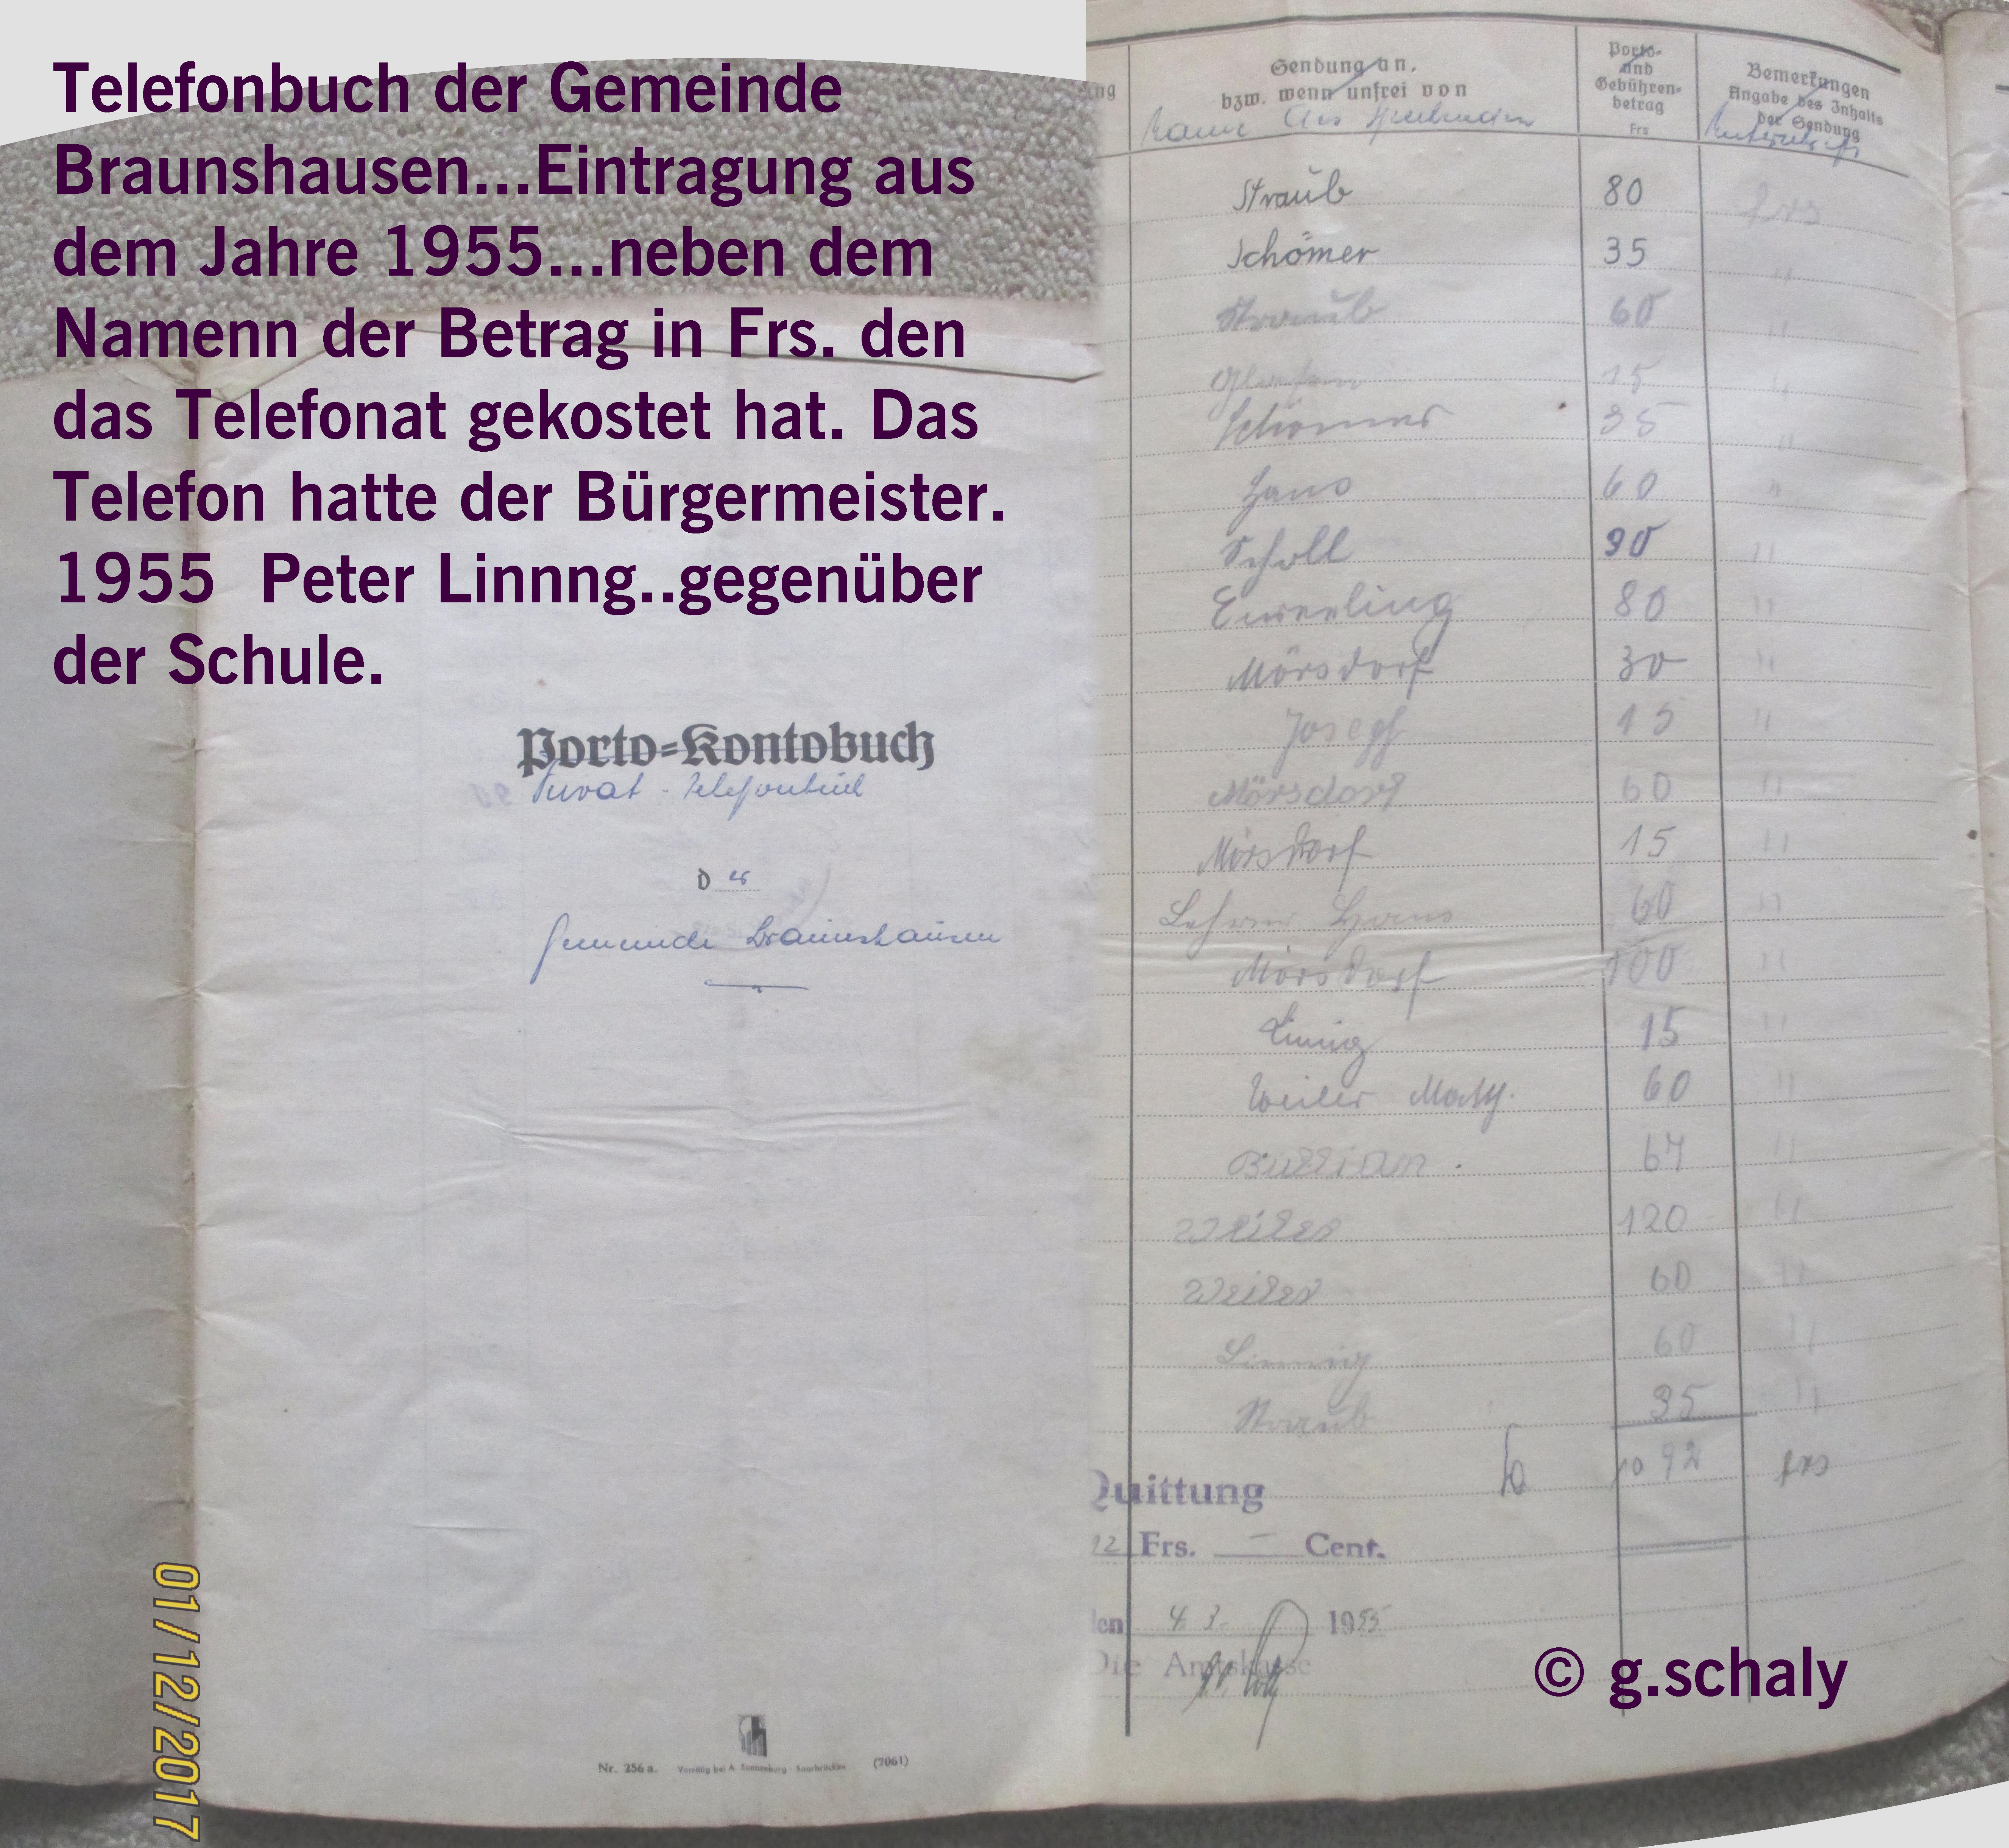 Telefonbuch der Gemeinde
Braunshausen...Eintragung aus
dem Jahre 1955...neben dem
Namenn der Betrag in Frs. den
das Telefonat gekostet hat. Das
Telefon hatte der Bürgermeister.
1955 Peter Linnng..gegenüber
der Schule.
Porto=Kontobuch
Privat - Telefonbuch
D er
Gemeinde Braunshausen
Nr. 256 a. (7061)
01/12/2017
ng
Sendung an,
bzw. wenn unfrei von
Name des
Porto-
und
Gebühren-
betrag
Frs
Bemerkungen
Angabe des Inhalts
der Sendung
Unterschrift
Straub 80 frs
Schömer 35 "
Straub 60 "
15 "
Schömer 35 "
Hans 60 "
Scholl 90 "
80 "
Mörsdorf 30 "
Josef 15 "
Mörsdorf 60 "
Mörsdorf 15 "
Lehrer Hans 60 "
Mörsdorf 100 "
Linnig 15 "
Weiler Math. 60 "
67 "
Weiler 120 "
Weiler 60 "
Linnig 60 "
Straub 35 "
1092 frs
Quittung
92 Frs. — Cent.
den 4. 3. 1955
Die Amtskasse
© g.schaly